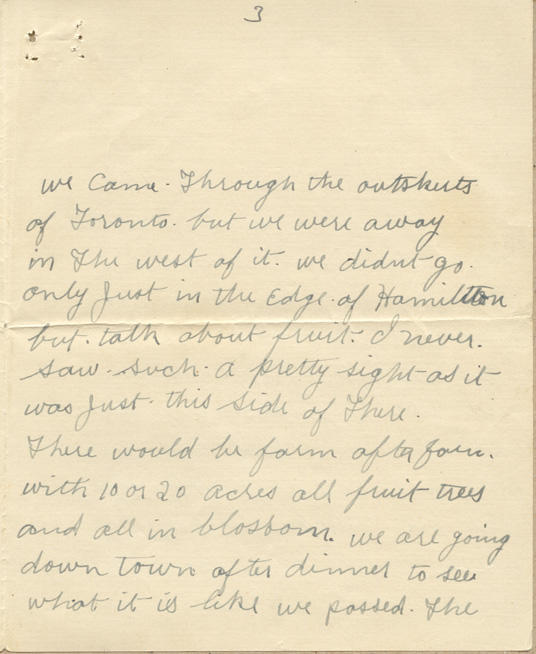 3
we came. Through the outskirts
of Toronto. but we were away
in The west of it. we didnt go.
only Just in the Edge of Hamilton
but. talk about fruit. I never.
saw. such. a pretty sight as it
was Just. this side of There.
There would be farm afta farm.
with 10 or 20 acres all fruit trees
and all in blossom. we are going
down town after dinner to see
what it is like we passed. The